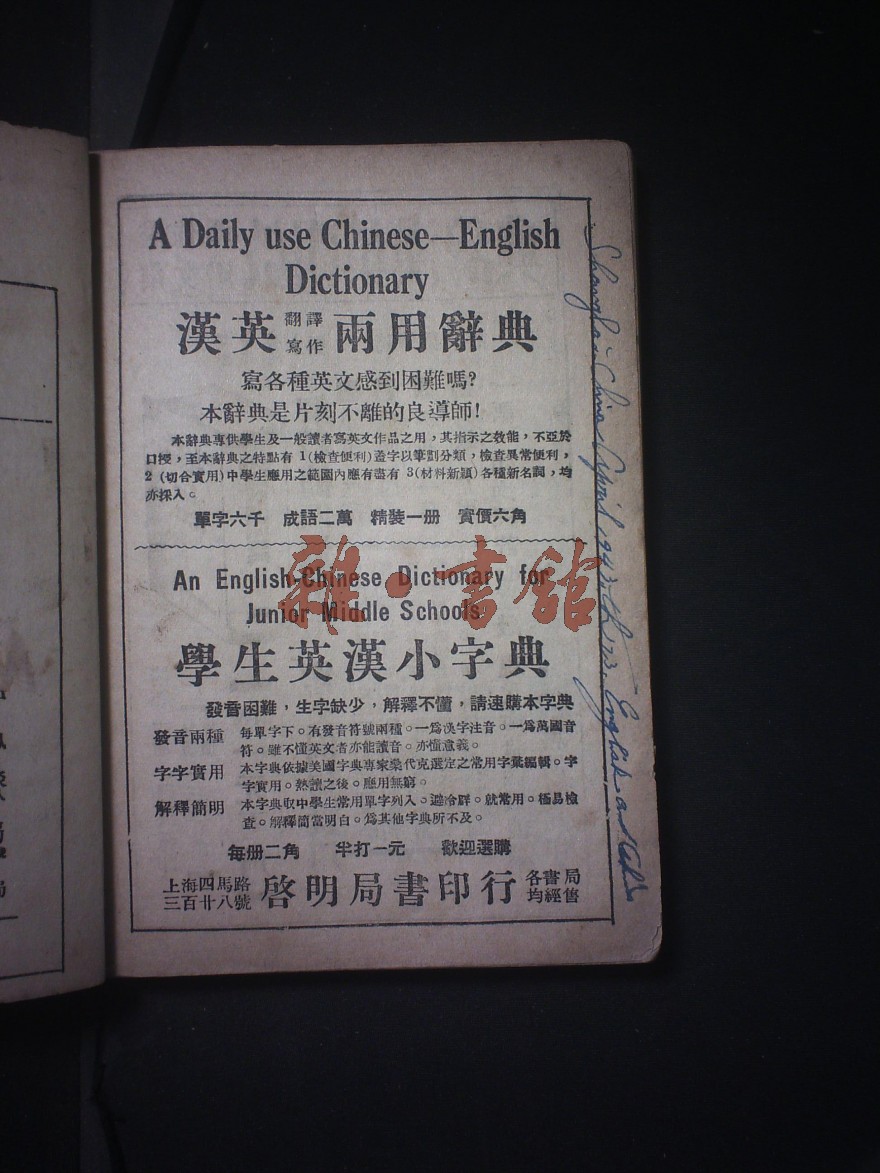 A Daily use Chinese—English
Dictionary
漢英翻譯寫作兩用辭典
寫各種英文感到困難嗎?
本辭典是片刻不離的良導師!
本辭典專供學生及一般讀者寫英文作品之用，其指示之效能，不亞於
口授，至本辭典之特點有 1(檢查便利)蓋字以筆劃分類，檢查異常便利，
2 (切合實用)中學生應用之範圍內應有盡有 3(材料新穎)各種新名詞，均
亦採入。
單字六千 成語二萬 精裝一册 實價六角
An English-Chinese Dictionary for
Junior Middle Schools
學生英漢小字典
發音困難，生字缺少，解釋不懂，請速購本字典
發音兩種 每單字下。有發音符號兩種。一爲漢字注音。一爲萬國音
符。雖不懂英文者亦能讀音。亦懂意義。
字字實用 本字典依據美國字典專家桑代克選定之常用字彙編輯。字
字實用。熟讀之後。應用無窮。
解釋簡明 本字典取中學生常用單字列入。避冷僻。就常用。極易檢
查。解釋簡當明白。爲其他字典所不及。
每册二角 半打一元 歡迎選購
上海四馬路
三百廿八號
啓明局書印行
各書局
均經售
Shanghai China April 1943
English and
雜·書館